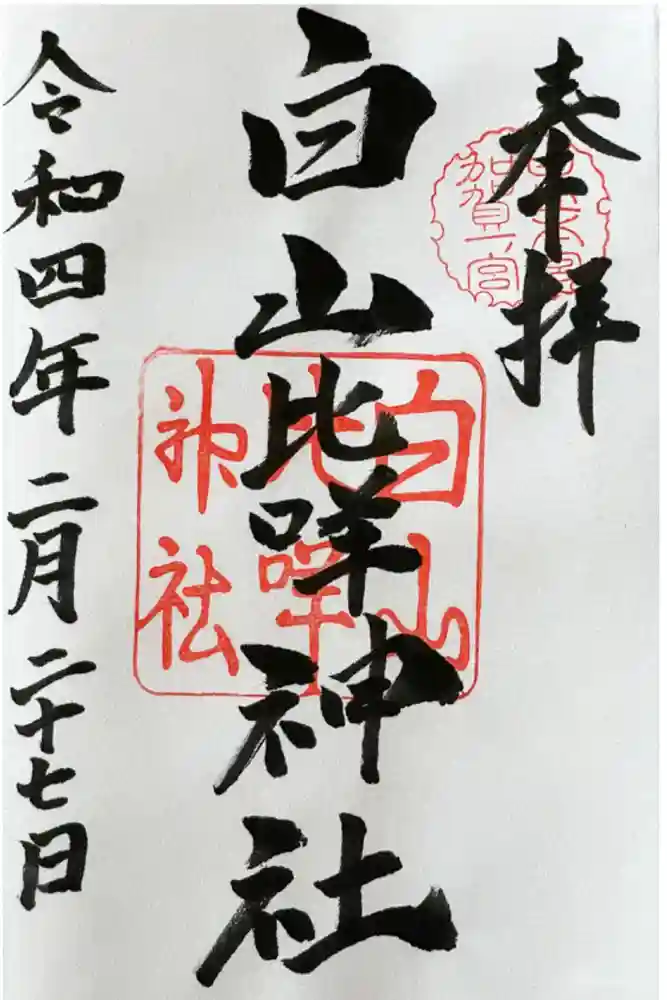 奉拝
白山比咩神社
令和四年二月二十七日
加賀一宮
白山
比咩
神社